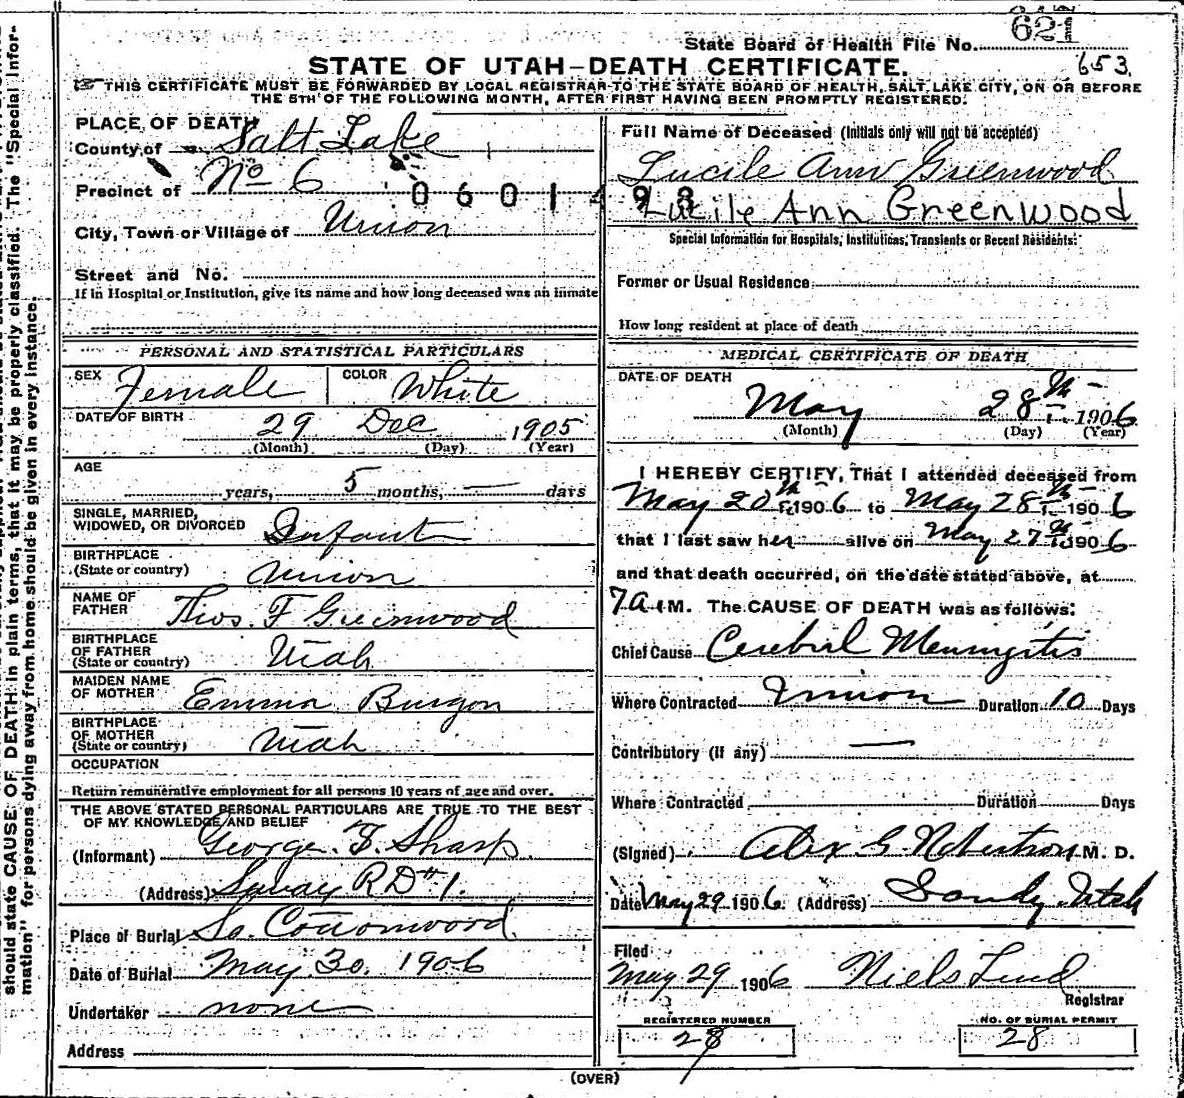 State Board of Health File No. 621
653.
STATE OF UTAH-DEATH CERTIFICATE.
THIS CERTIFICATE MUST BE FORWARDED BY LOCAL REGISTRAR TO THE STATE BOARD OF HEALTH, SALT LAKE CITY, ON OR BEFORE
THE 5TH OF THE FOLLOWING MONTH, AFTER FIRST HAVING BEEN PROMPTLY REGISTERED.
PLACE OF DEATH
County of Salt Lake
Precinct of No 6
0601498
City, Town or Village of Union
Street and No.
If in Hospital or Institution, give its name and how long deceased was an inmate
PERSONAL AND STATISTICAL PARTICULARS
SEX Female COLOR White
DATE OF BIRTH 29 Dec 1905
(Month) (Day) (Year)
AGE
years, 5 months, — days
SINGLE, MARRIED,
WIDOWED, OR DIVORCED Infant
BIRTHPLACE
(State or country) Union
NAME OF
FATHER Thos. F Greenwood
BIRTHPLACE
OF FATHER
(State or country) Utah
MAIDEN NAME
OF MOTHER Emma Burgon
BIRTHPLACE
OF MOTHER
(State or country) Utah
OCCUPATION
Return remunerative employment for all persons 10 years of age and over.
THE ABOVE STATED PERSONAL PARTICULARS ARE TRUE TO THE BEST
OF MY KNOWLEDGE AND BELIEF
(Informant) George F. Sharp.
(Address) Sandy R D #1.
Place of Burial So. Cottonwood.
Date of Burial May 30. 1906
Undertaker none
Address
Full Name of Deceased (Initials only will not be accepted)
Lucile Ann Greenwood
Lucile Ann Greenwood
Special Information for Hospitals, Institutions, Transients or Recent Residents:
Former or Usual Residence:
How long resident at place of death
MEDICAL CERTIFICATE OF DEATH
DATE OF DEATH
May 28th 1906
(Month) (Day) (Year)
I HEREBY CERTIFY, That I attended deceased from
May 20th 1906 to May 28th 1906
that I last saw her alive on May 27th 1906
and that death occurred, on the date stated above, at
7 a. M. The CAUSE OF DEATH was as follows:
Chief Cause Cerebral Meningitis
Where Contracted Union Duration 10 Days
Contributory (if any) —
Where Contracted Duration Days
(Signed) Alex G. Robertson M. D.
Date May 29 1906. (Address) Sandy Utah
Filed
May 29 1906 Niels Lind
Registrar
REGISTERED NUMBER
28
NO. OF BURIAL PERMIT
28
(OVER)
should state CAUSE OF DEATH in plain terms, that it may be properly classified. The "Special Infor-
mation" for persons dying away from home should be given in every instance.